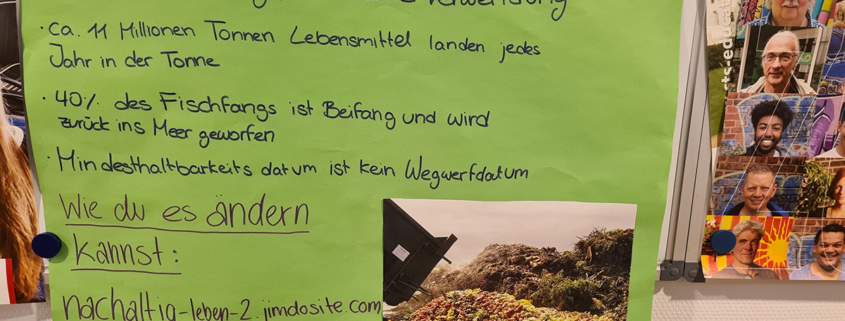 · Ca. 11 Millionen Tonnen Lebensmittel landen jedes
Jahr in der Tonne
· 40% des Fischfangs ist Beifang und wird
zurück ins Meer geworfen
· Mindesthaltbarkeitsdatum ist kein Wegwerfdatum
Wie du es ändern
kannst:
nachaltig-leben-2.jimdosite.com